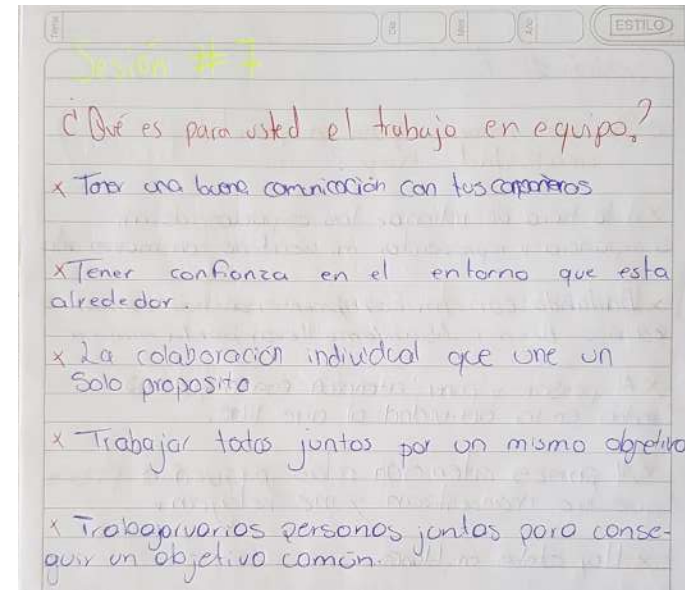 Tema
Día
Mes
Año
ESTILO
Sesión #7
¿Qué es para usted el trabajo en equipo?
x Tener una buena comunicación con tus compañeros
x Tener confianza en el entorno que esta
alrededor.
x La colaboración individual que une un
Solo proposito
x Trabajar todos juntos por un mismo objetivo
x Trabajar varios personas juntas para conse-
guir un objetivo común.